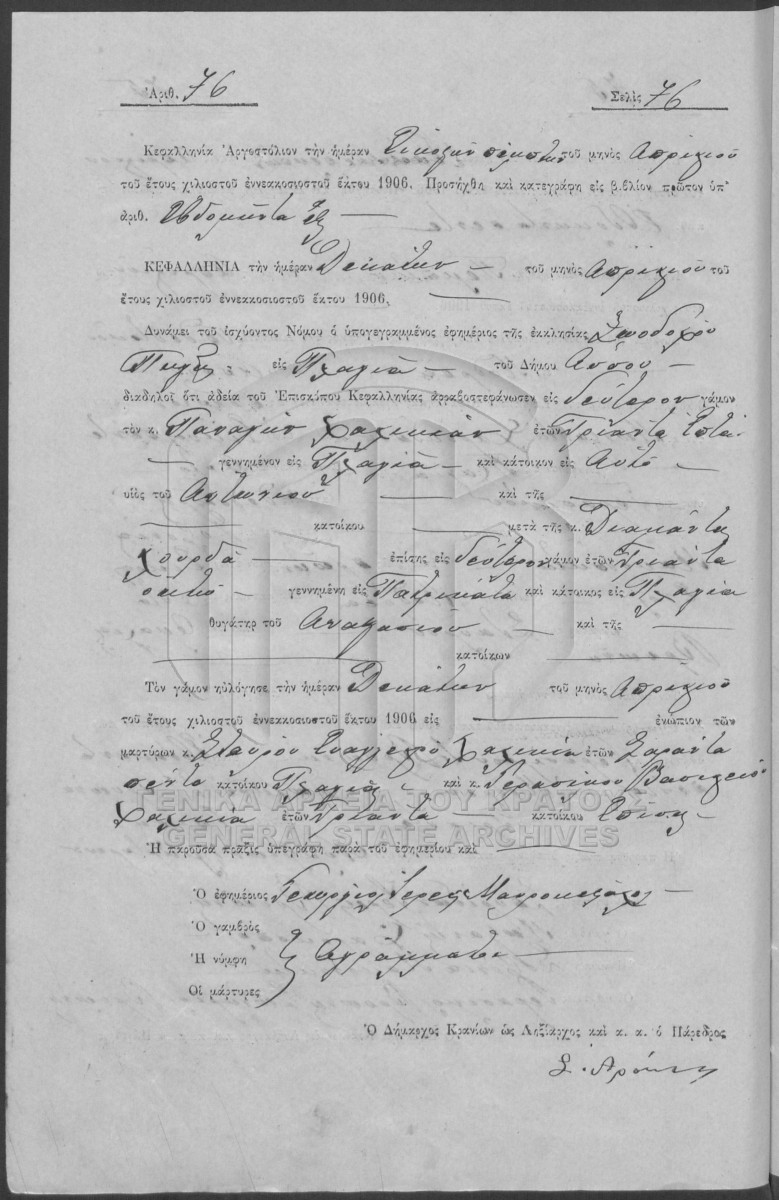 Ἀριθ. 76
Σελὶς 76
Κεφαλληνία Ἀργοστόλιον τὴν ἡμέραν Εἰκοστὴν πέμπτην τοῦ μηνὸς Ἀπριλίου
τοῦ ἔτους χιλιοστοῦ ἐννεακοσιοστοῦ ἕκτου 1906. Προσήχθη καὶ κατεγράφη εἰς βιβλίον πρῶτον ὑπ'
ἀριθ. Ἑβδομήντα ἓξ
ΚΕΦΑΛΛΗΝΙΑ τὴν ἡμέραν Δεκάτην τοῦ μηνὸς Ἀπριλίου τοῦ
ἔτους χιλιοστοῦ ἐννεακοσιοστοῦ ἕκτου 1906.
Δυνάμει τοῦ ἰσχύοντος Νόμου ὁ ὑπογεγραμμένος ἐφημέριος τῆς ἐκκλησίας Ζωοδόχου
Πηγῆς εἰς Πλαγιὰ τοῦ Δήμου Άσσου
διαδηλοῖ ὅτι ἀδείᾳ τοῦ Ἐπισκόπου Κεφαλληνίας ἀρραβοστεφάνωσεν εἰς δεύτερον γάμον
τὸν κ. Παναγὴν Χαλικιὰν ἐτῶν Τριάντα Ἑπτὰ
γεννημένον εἰς Πλαγιὰ καὶ κάτοικον εἰς Αὐτὸ
υἱὸς τοῦ Ἀντωνίου καὶ τῆς
κατοίκου μετὰ τῆς κ. Διαμάντα
Χουρδᾶ ἐπίσης εἰς δεύτερον γάμον ἐτῶν Τριάντα
ὀκτὼ γεννημένη εἰς Πατρικάτα καὶ κάτοικος εἰς Πλαγιὰ
θυγάτηρ τοῦ Ἀναστασίου καὶ τῆς
κατοίκων
Τὸν γάμον ηὐλόγησε τὴν ἡμέραν Δεκάτην τοῦ μηνὸς Ἀπριλίου
τοῦ ἔτους χιλιοστοῦ ἐννεακοσιοστοῦ ἕκτου 1906 εἰς ἐνώπιον τῶν
μαρτύρων κ. Σταύρου Εὐαγγελ. Χαλικιᾶ ἐτῶν Σαράντα
πέντε κατοίκου Πλαγιὰ καὶ κ. Γερασίμου Βασιλείου
Χαλικιᾶ ἐτῶν Τριάντα κατοίκου Ἐπίσης
ΓΕΝΙΚΑ ΑΡΧΕΙΑ ΤΟΥ ΚΡΑΤΟΥΣ
GENERAL STATE ARCHIVES
Ἡ παροῦσα πρᾶξις ὑπεγράφη παρὰ τοῦ ἐφημερίου καὶ
Ὁ ἐφημέριος Γεώργιος Ἱερεὺς Μαυροκέφαλος
Ὁ γαμβρὸς
Ἡ νύμφη Ἀγράμματοι
Οἱ μάρτυρες
Ὁ Δήμαρχος Κρανίων ὡς Ληξίαρχος καὶ κ. κ. ὁ Πάρεδρος